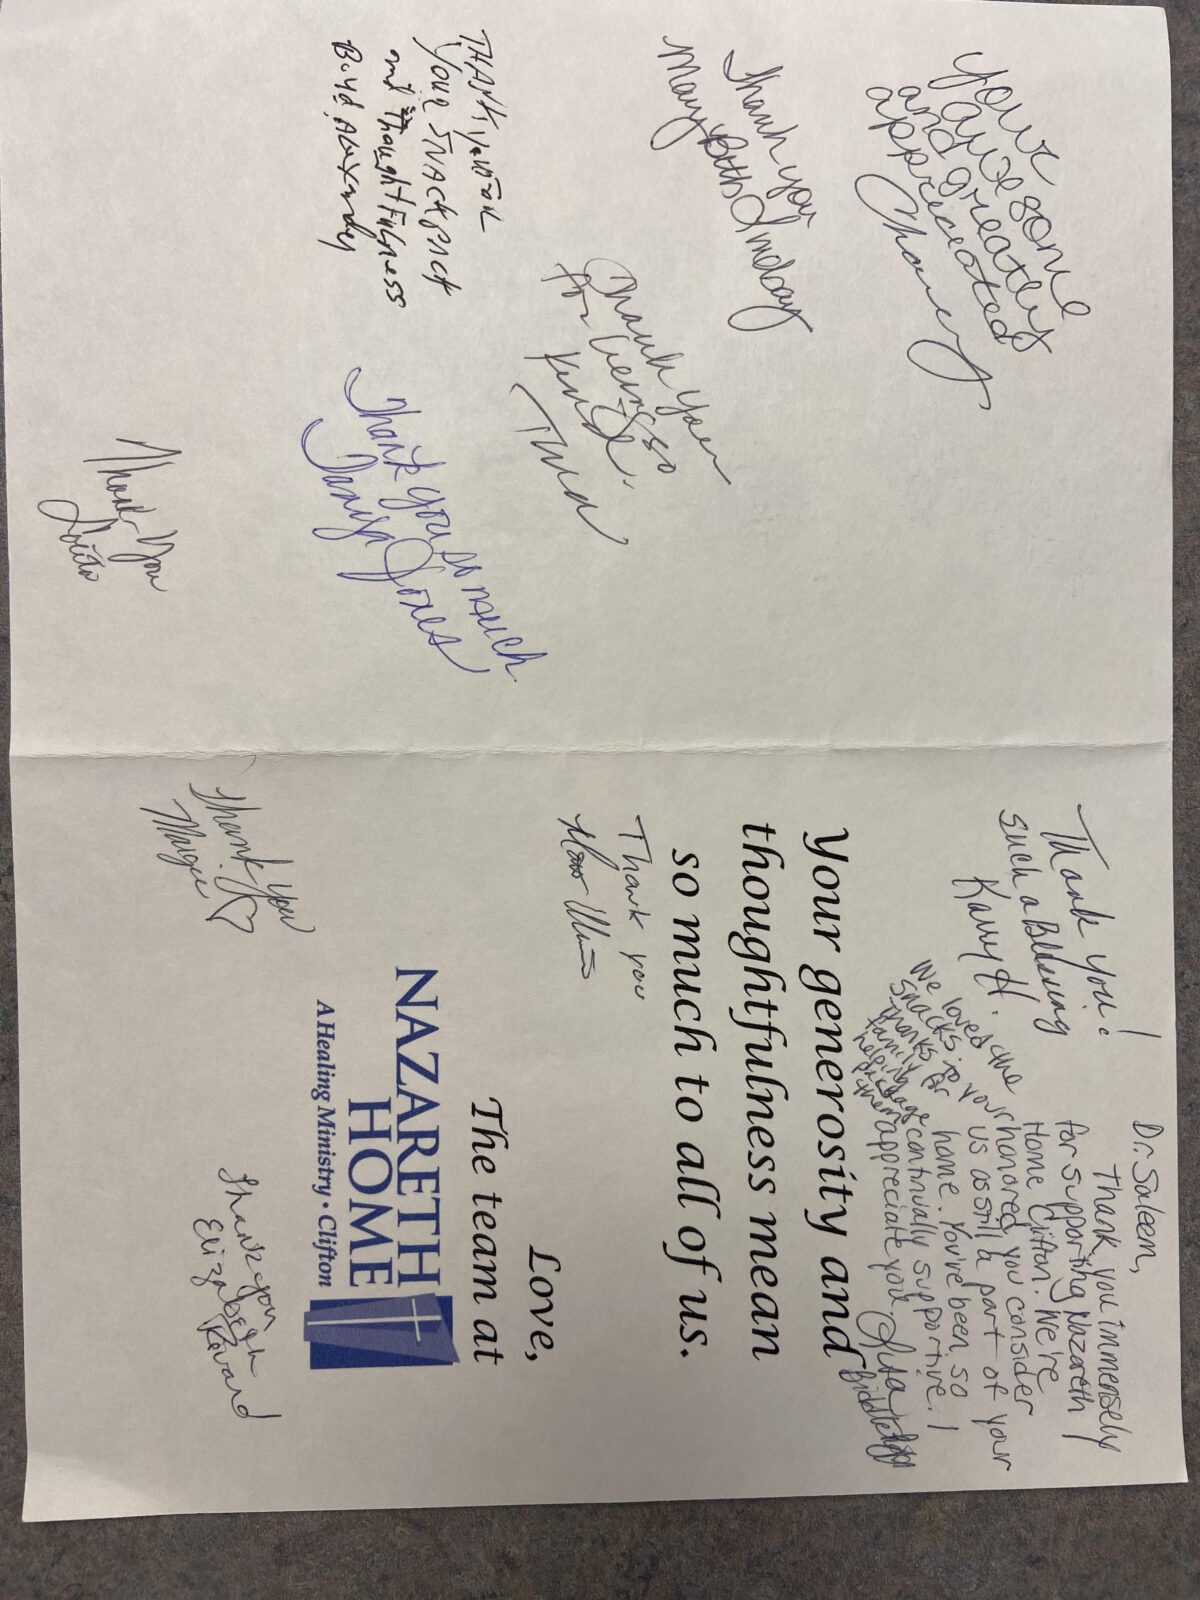 Your
awesome
and greatly
appreciated
Thank you
Mary Beth Lindsay
Thank you
for being so
kind.
THANK you FOR
Your SNACK PACK
and thoughtFulness
Thank you so much
Tanya Jones
Thank You
Thank you!
such a Blessing
Karry H.
Dr. Saleem,
Thank you immensely
for supporting Nazareth
Home Clifton. We're
honored you consider
us as still a part of your
home. You've been so
continually supportive. I
appreciate you.
We loved the
snacks so
thanks for
your
family
helping
Your generosity and
thoughtfulness mean
so much to all of us.
Thank you
Love,
The team at
NAZARETH
HOME
A Healing Ministry • Clifton
Thank You
Margee
Thank you
Elizabeth
Revard